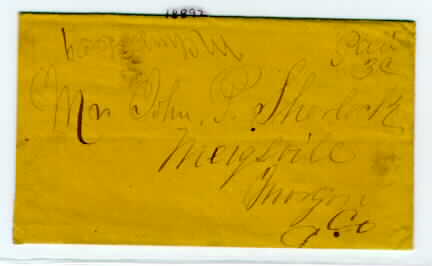 18892
Paid
3c
Mr John P. Sherlock
Meigsville
Morgan
Co